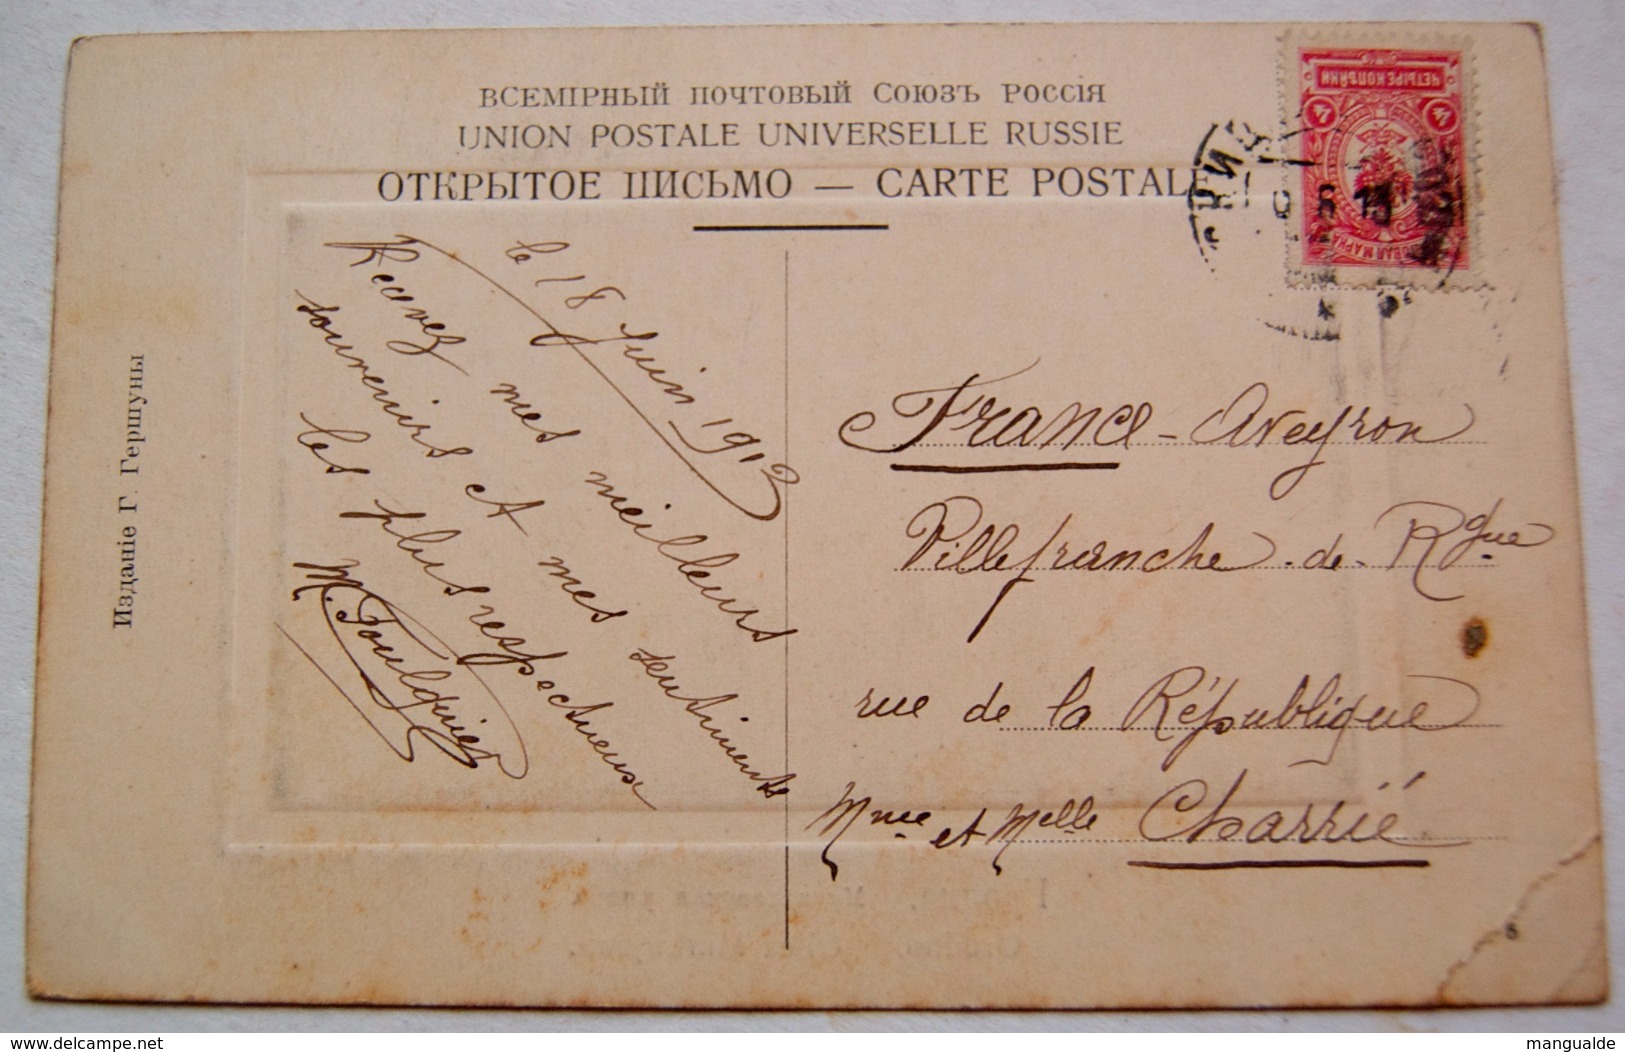 ВСЕМІРНЫЙ ПОЧТОВЫЙ СОЮЗЪ РОССІЯ
UNION POSTALE UNIVERSELLE RUSSIE
ОТКРЫТОЕ ПИСЬМО — CARTE POSTALE
Изданіе Г. Гершуны
ЧЕТЫРЕ КОПѢЙКИ
4 4
МАРКА
le 18 Juin 1913
Recevez mes meilleurs
souvenirs et mes sentiments
les plus respectueux
M. Foulquier
France - Aveyron
Villefranche - de - Rgue
rue de la République
Mme et Melle Charrié
www.delcampe.net
mangualde